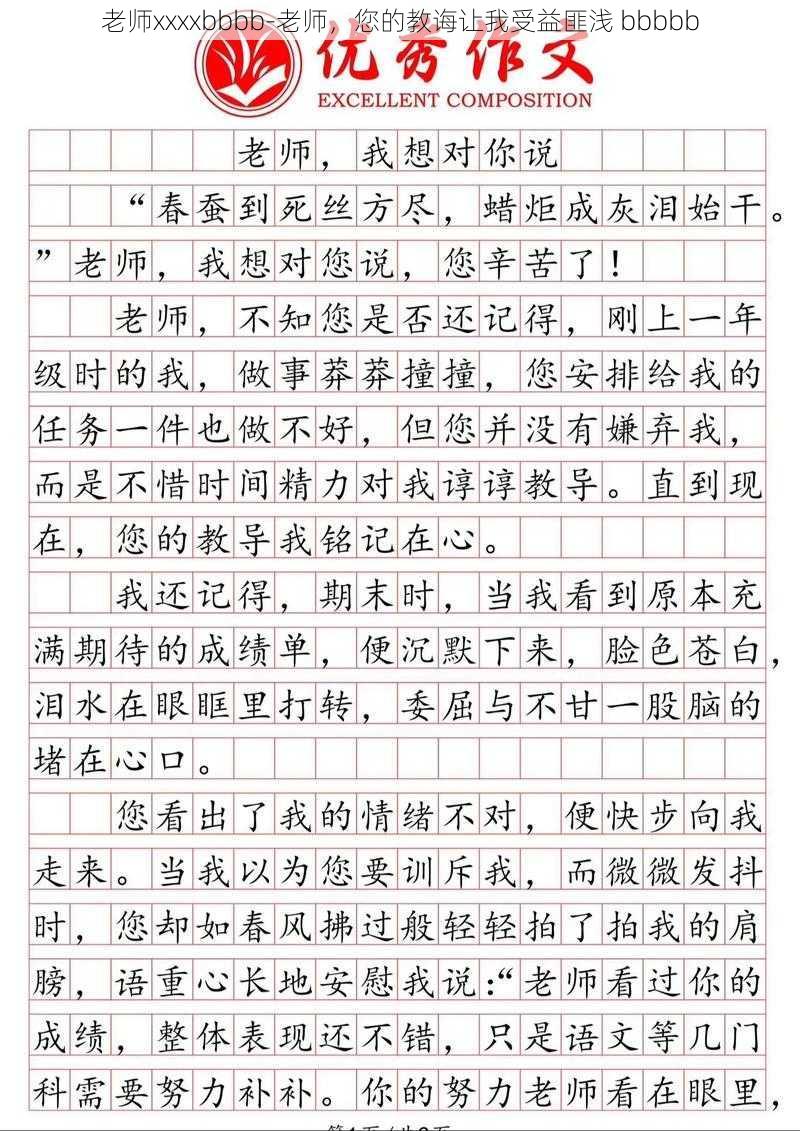 老师xxxxbbbb-老师，您的教诲让我受益匪浅 bbbbb
优秀作文
EXCELLENT COMPOSITION
老师，我想对你说
“春蚕到死丝方尽，蜡炬成灰泪始干。
”老师，我想对您说，您辛苦了！
老师，不知您是否还记得，刚上一年
级时的我，做事莽莽撞撞，您安排给我的
任务一件也做不好，但您并没有嫌弃我，
而是不惜时间精力对我谆谆教导。直到现
在，您的教导我铭记在心。
我还记得，期末时，当我看到原本充
满期待的成绩单，便沉默下来，脸色苍白，
泪水在眼眶里打转，委屈与不甘一股脑的
堵在心口。
您看出了我的情绪不对，便快步向我
走来。当我以为您要训斥我，而微微发抖
时，您却如春风拂过般轻轻拍了拍我的肩
膀，语重心长地安慰我说：“老师看过你的
成绩，整体表现还不错，只是语文等几门
科需要努力补补。你的努力老师看在眼里，